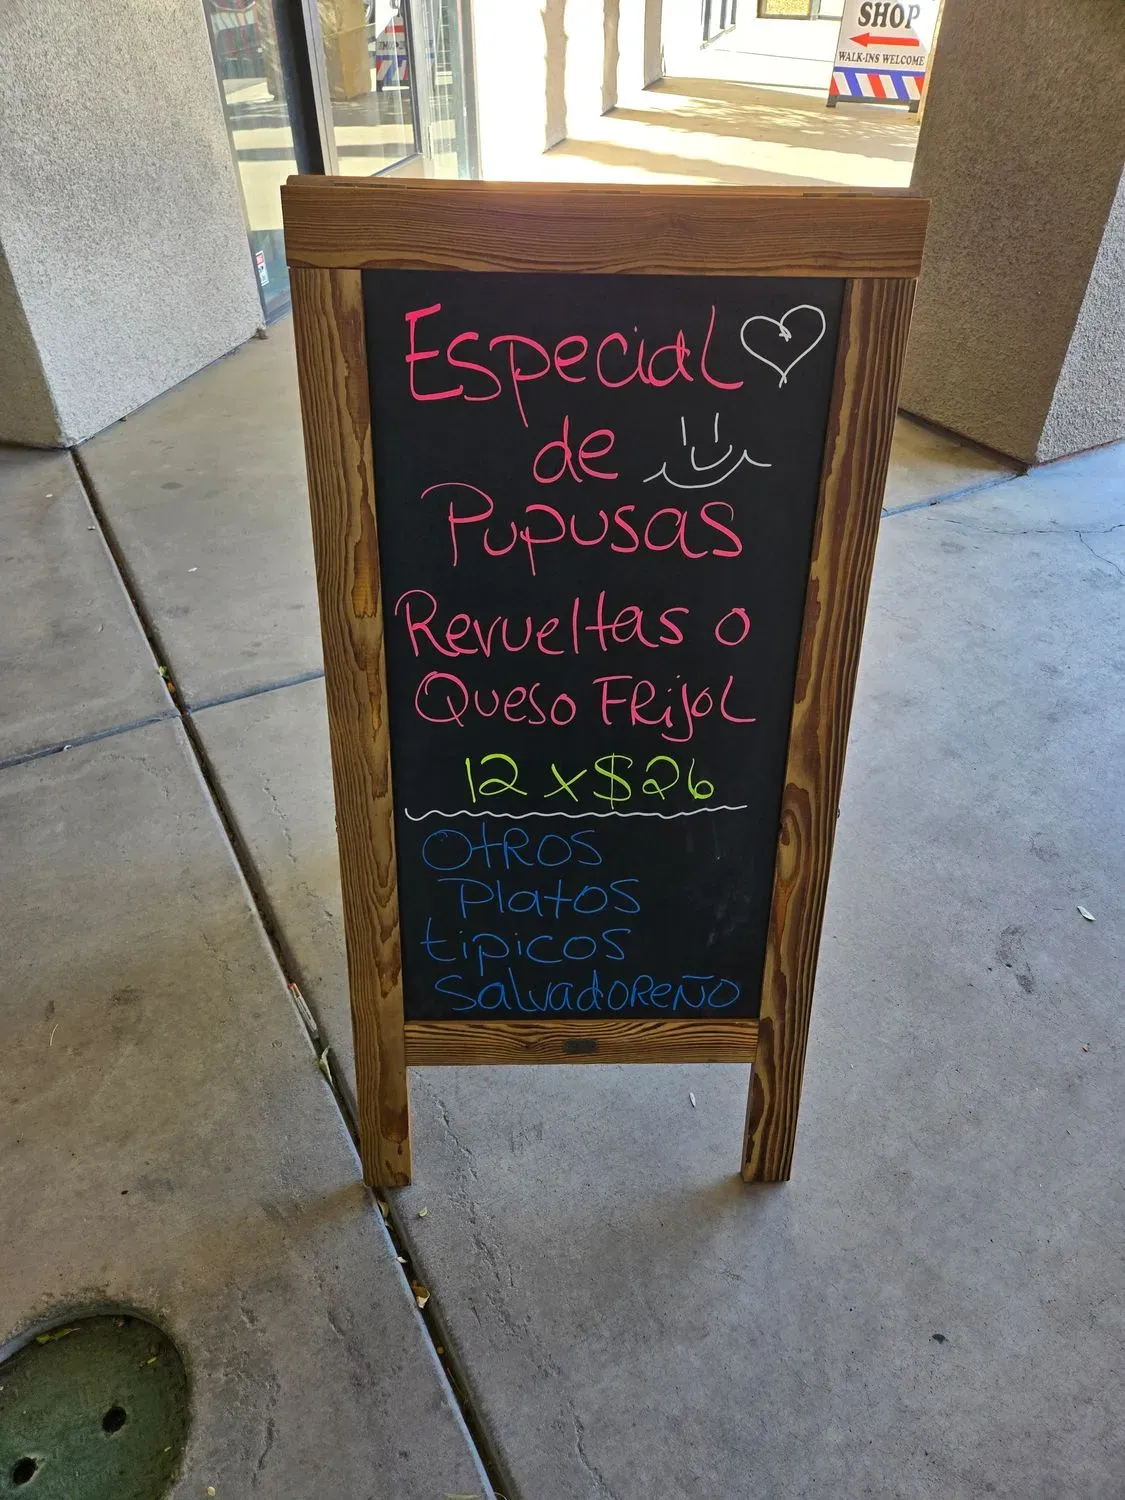 SHOP
WALK-INS WELCOME
Especial
de
Pupusas
Revueltas o
Queso FRijoL
12 x $26
OtROS
Platos
tipicos
SalvadoReÑo